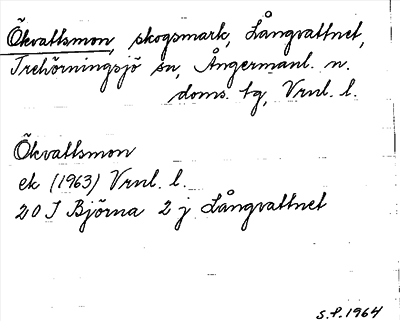 Ökvattsmon, skogsmark, Långvattnet,
Trehörningsjö sn, Ångermanl. n.
doms. tg, Vrnl. l.
Ökvattsmon
ek (1963) Vrnl. l.
20 I Björna 2 j Långvattnet
S.P. 1964